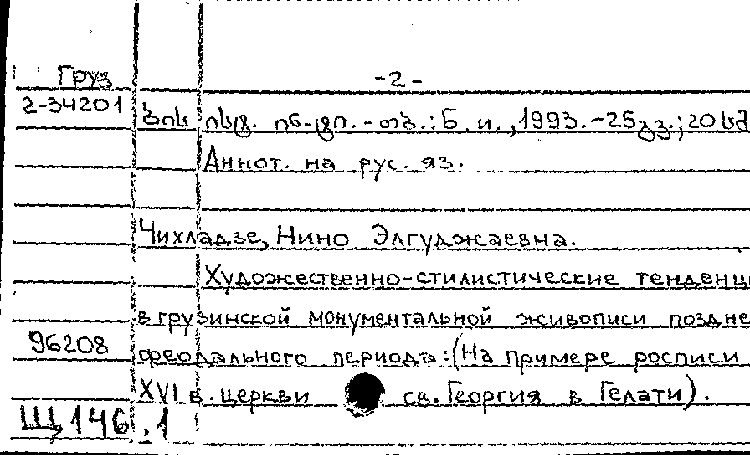 Груз -2-
2-34201 ისტ. ინ-ტი. - თბ.: Б. и., 1993. - 25 გვ.; 20 სმ
Аннот. на рус. яз.
Чихладзе, Нино Элгуджаевна.
Художественно-стилистические тенденц
в грузинской монументальной живописи поздне
96208 феодального периода: (На примере росписи
XVI в. церкви св. Георгия в Гелати).
Щ146.1